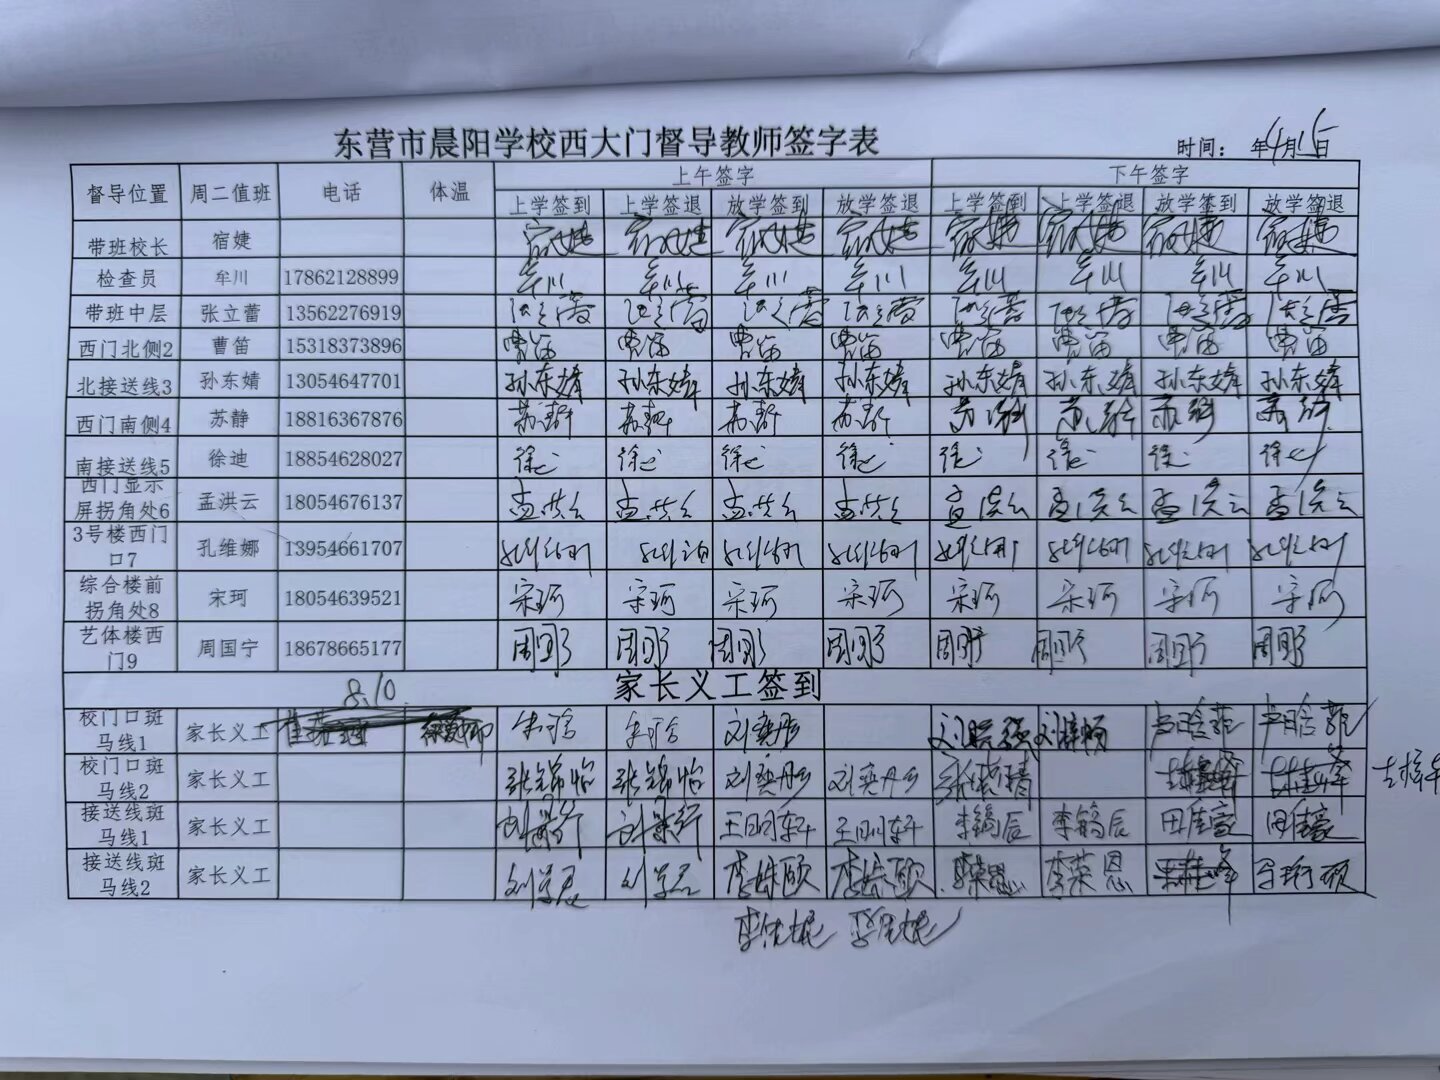 东营市晨阳学校西大门督导教师签字表
时间： 年4月15日
督导位置 周二值班 电话 体温 上午签字 下午签字
上学签到 上学签退 放学签到 放学签退 上学签到 上学签退 放学签到 放学签退
带班校长 宿婕 宿婕 宿婕 宿婕 宿婕 宿婕 宿婕 宿婕 宿婕
检查员 牟川 17862128899 牟川 牟川 牟川 牟川 牟川 牟川 牟川 牟川
带班中层 张立蕾 13562276919 张立蕾 张立蕾 张立蕾 张立蕾 张立蕾 张立蕾 张立蕾 张立蕾
西门北侧2 曹笛 15318373896 曹笛 曹笛 曹笛 曹笛 曹笛 曹笛 曹笛 曹笛
北接送线3 孙东婧 13054647701 孙东婧 孙东婧 孙东婧 孙东婧 孙东婧 孙东婧 孙东婧 孙东婧
西门南侧4 苏静 18816367876 苏静 苏静 苏静 苏静 苏静 苏静 苏静 苏静
南接送线5 徐迪 18854628027 徐迪 徐迪 徐迪 徐迪 徐迪 徐迪 徐迪 徐迪
西门显示
屏拐角处6 孟洪云 18054676137 孟洪云 孟洪云 孟洪云 孟洪云 孟洪云 孟洪云 孟洪云 孟洪云
3号楼西门
口7 孔维娜 13954661707 孔维娜 孔维娜 孔维娜 孔维娜 孔维娜 孔维娜 孔维娜 孔维娜
综合楼前
拐角处8 宋珂 18054639521 宋珂 宋珂 宋珂 宋珂 宋珂 宋珂 宋珂 宋珂
艺体楼西
门9 周国宁 18678665177 周国宁 周国宁 周国宁 周国宁 周国宁 周国宁 周国宁 周国宁
家长义工签到
8.10
校门口斑
马线1 家长义工 朱可晗 朱可晗 刘奕彤
校门口斑
马线2 家长义工 张锦怡 张锦怡 刘奕丹 刘奕丹
接送线斑
马线1 家长义工 李镐辰 李镐辰 田佳豪 田佳豪
接送线斑
马线2 家长义工 李荣恩 李荣恩